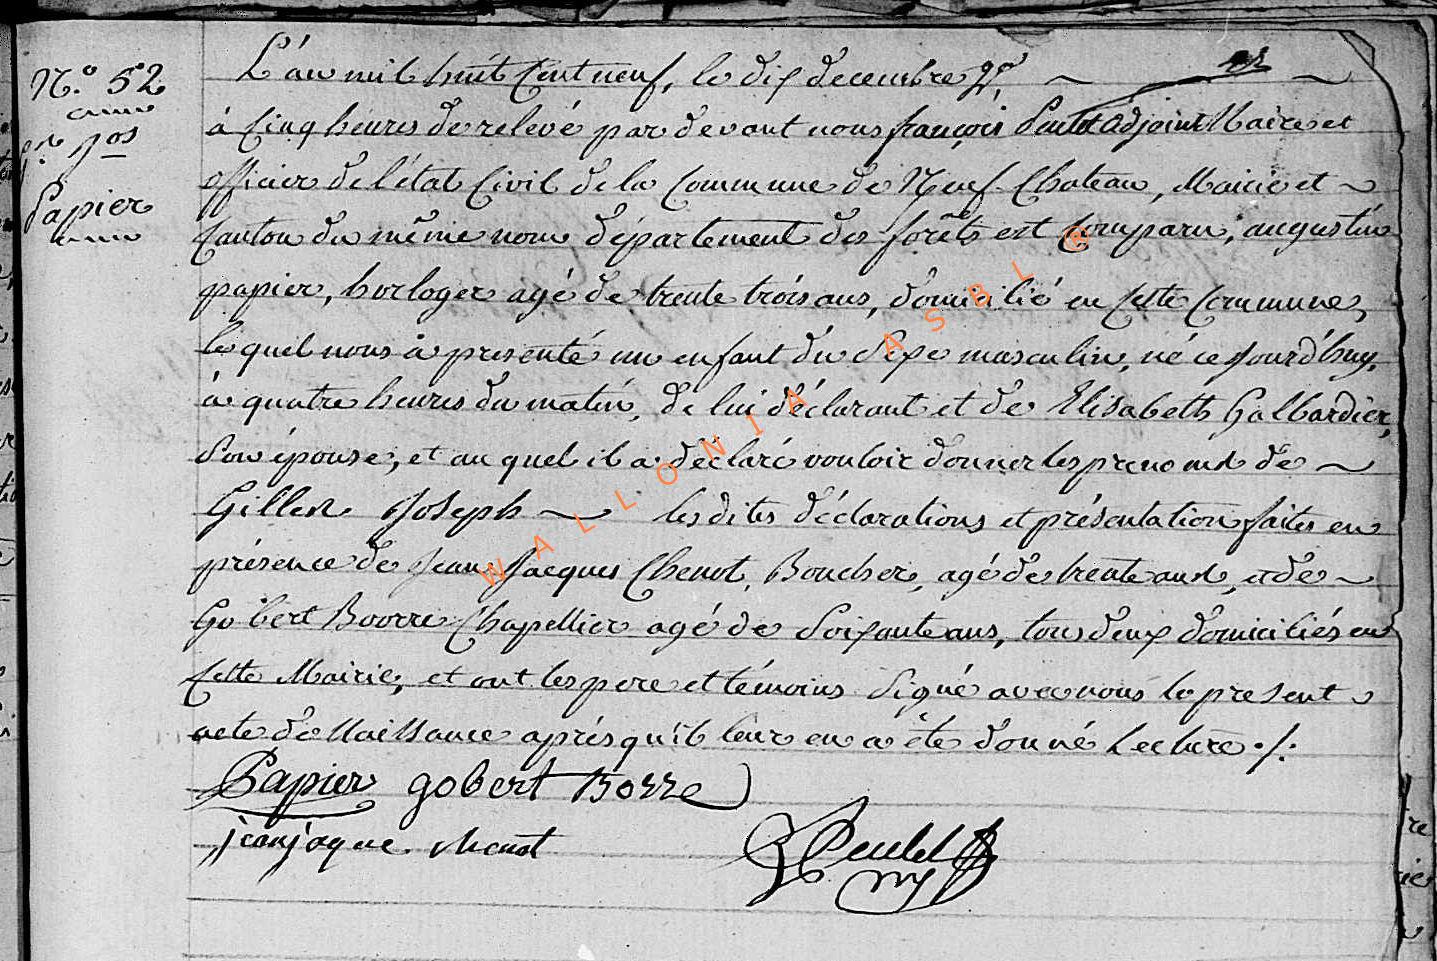 N.° 52
G.les Jos
Papier
L'an mil huit Cent neuf, le dix decembre
à Cinq heures de relevé par devant nous françois Pentet adjoint Maire et
officier de l'état Civil de la Commune de Neuf-Chateau, Mairie et
Canton du même nom département des forêts est comparu, augustin
papier, horloger agé de trente trois ans, domicilié en Cette Commune,
lequel nous à presenté un enfant du Sexe masculin, né ce Jourd'huy,
à quatre heures du matin, de lui déclarant et de Elisabeth Galhardier,
Son épouse, et au quel il a déclaré vouloir donner les prenoms de
Gilles Joseph les dites déclarations et présentation faites en
présence de Jean Jacques Chenot, Boucher, agé de trente ans, et de
Gobert Boorre Chapellier agé de Soixante ans, tous deux domiciliés en
Cette Mairie, et ont les pere et témoins Signé avec nous le present
acte de Naissance aprés qu'il leur en a été donné Lecture ./.
Papier gobert Borre
jeanjaque chenot
WALLONIA ASBL ®